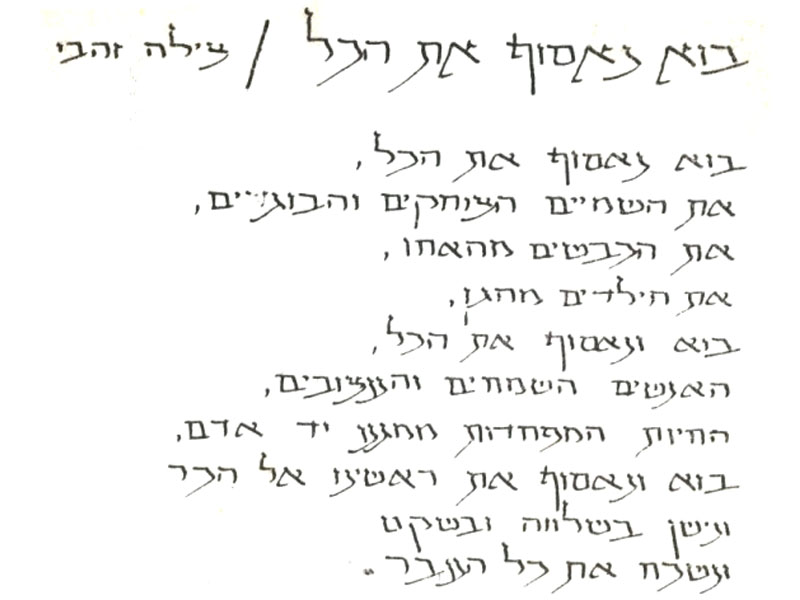 בוא נאסוף את הכל / צילה זהבי
בוא נאסוף את הכל,
את השמיים הצוחקים והבוגדיים,
את הכבשים מהאחו,
את הילדים מהגן,
בוא ונאסוף את הכל,
האנשים השמחים והעצובים,
החיות המפחדות ממגע יד אדם,
בוא ונאסוף את ראשינו אל הכר
ונישן בשלווה ובשקט
ונשכח את כל העבר.